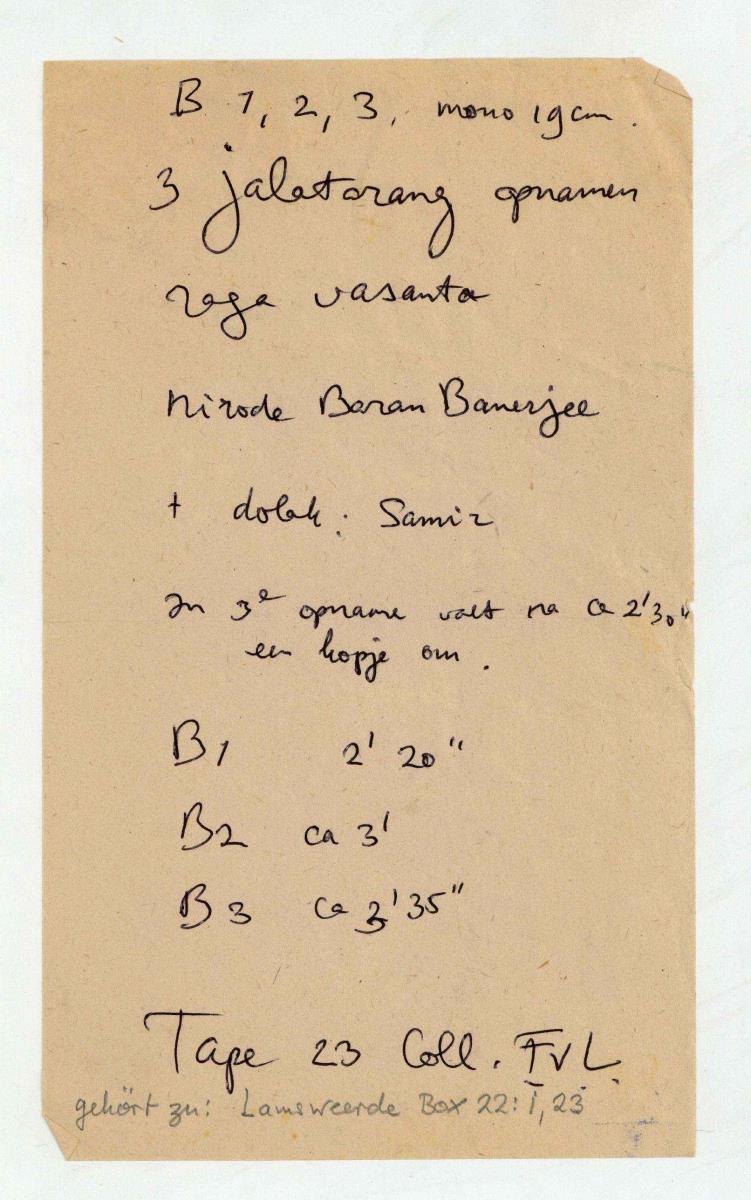 B 1, 2, 3, mono 19 cm.
3 jalatarang opnamen
raga vasanta
Nirode Baran Banerjee
+ dolak: Samir
In 3e opname valt na ca 2'30"
een kopje om.
B1 2' 20"
B2 ca 3'
B3 ca 3' 35"
Tape 23 Coll. FvL.
gehört zu: Lamsweerde Box 22: I, 23